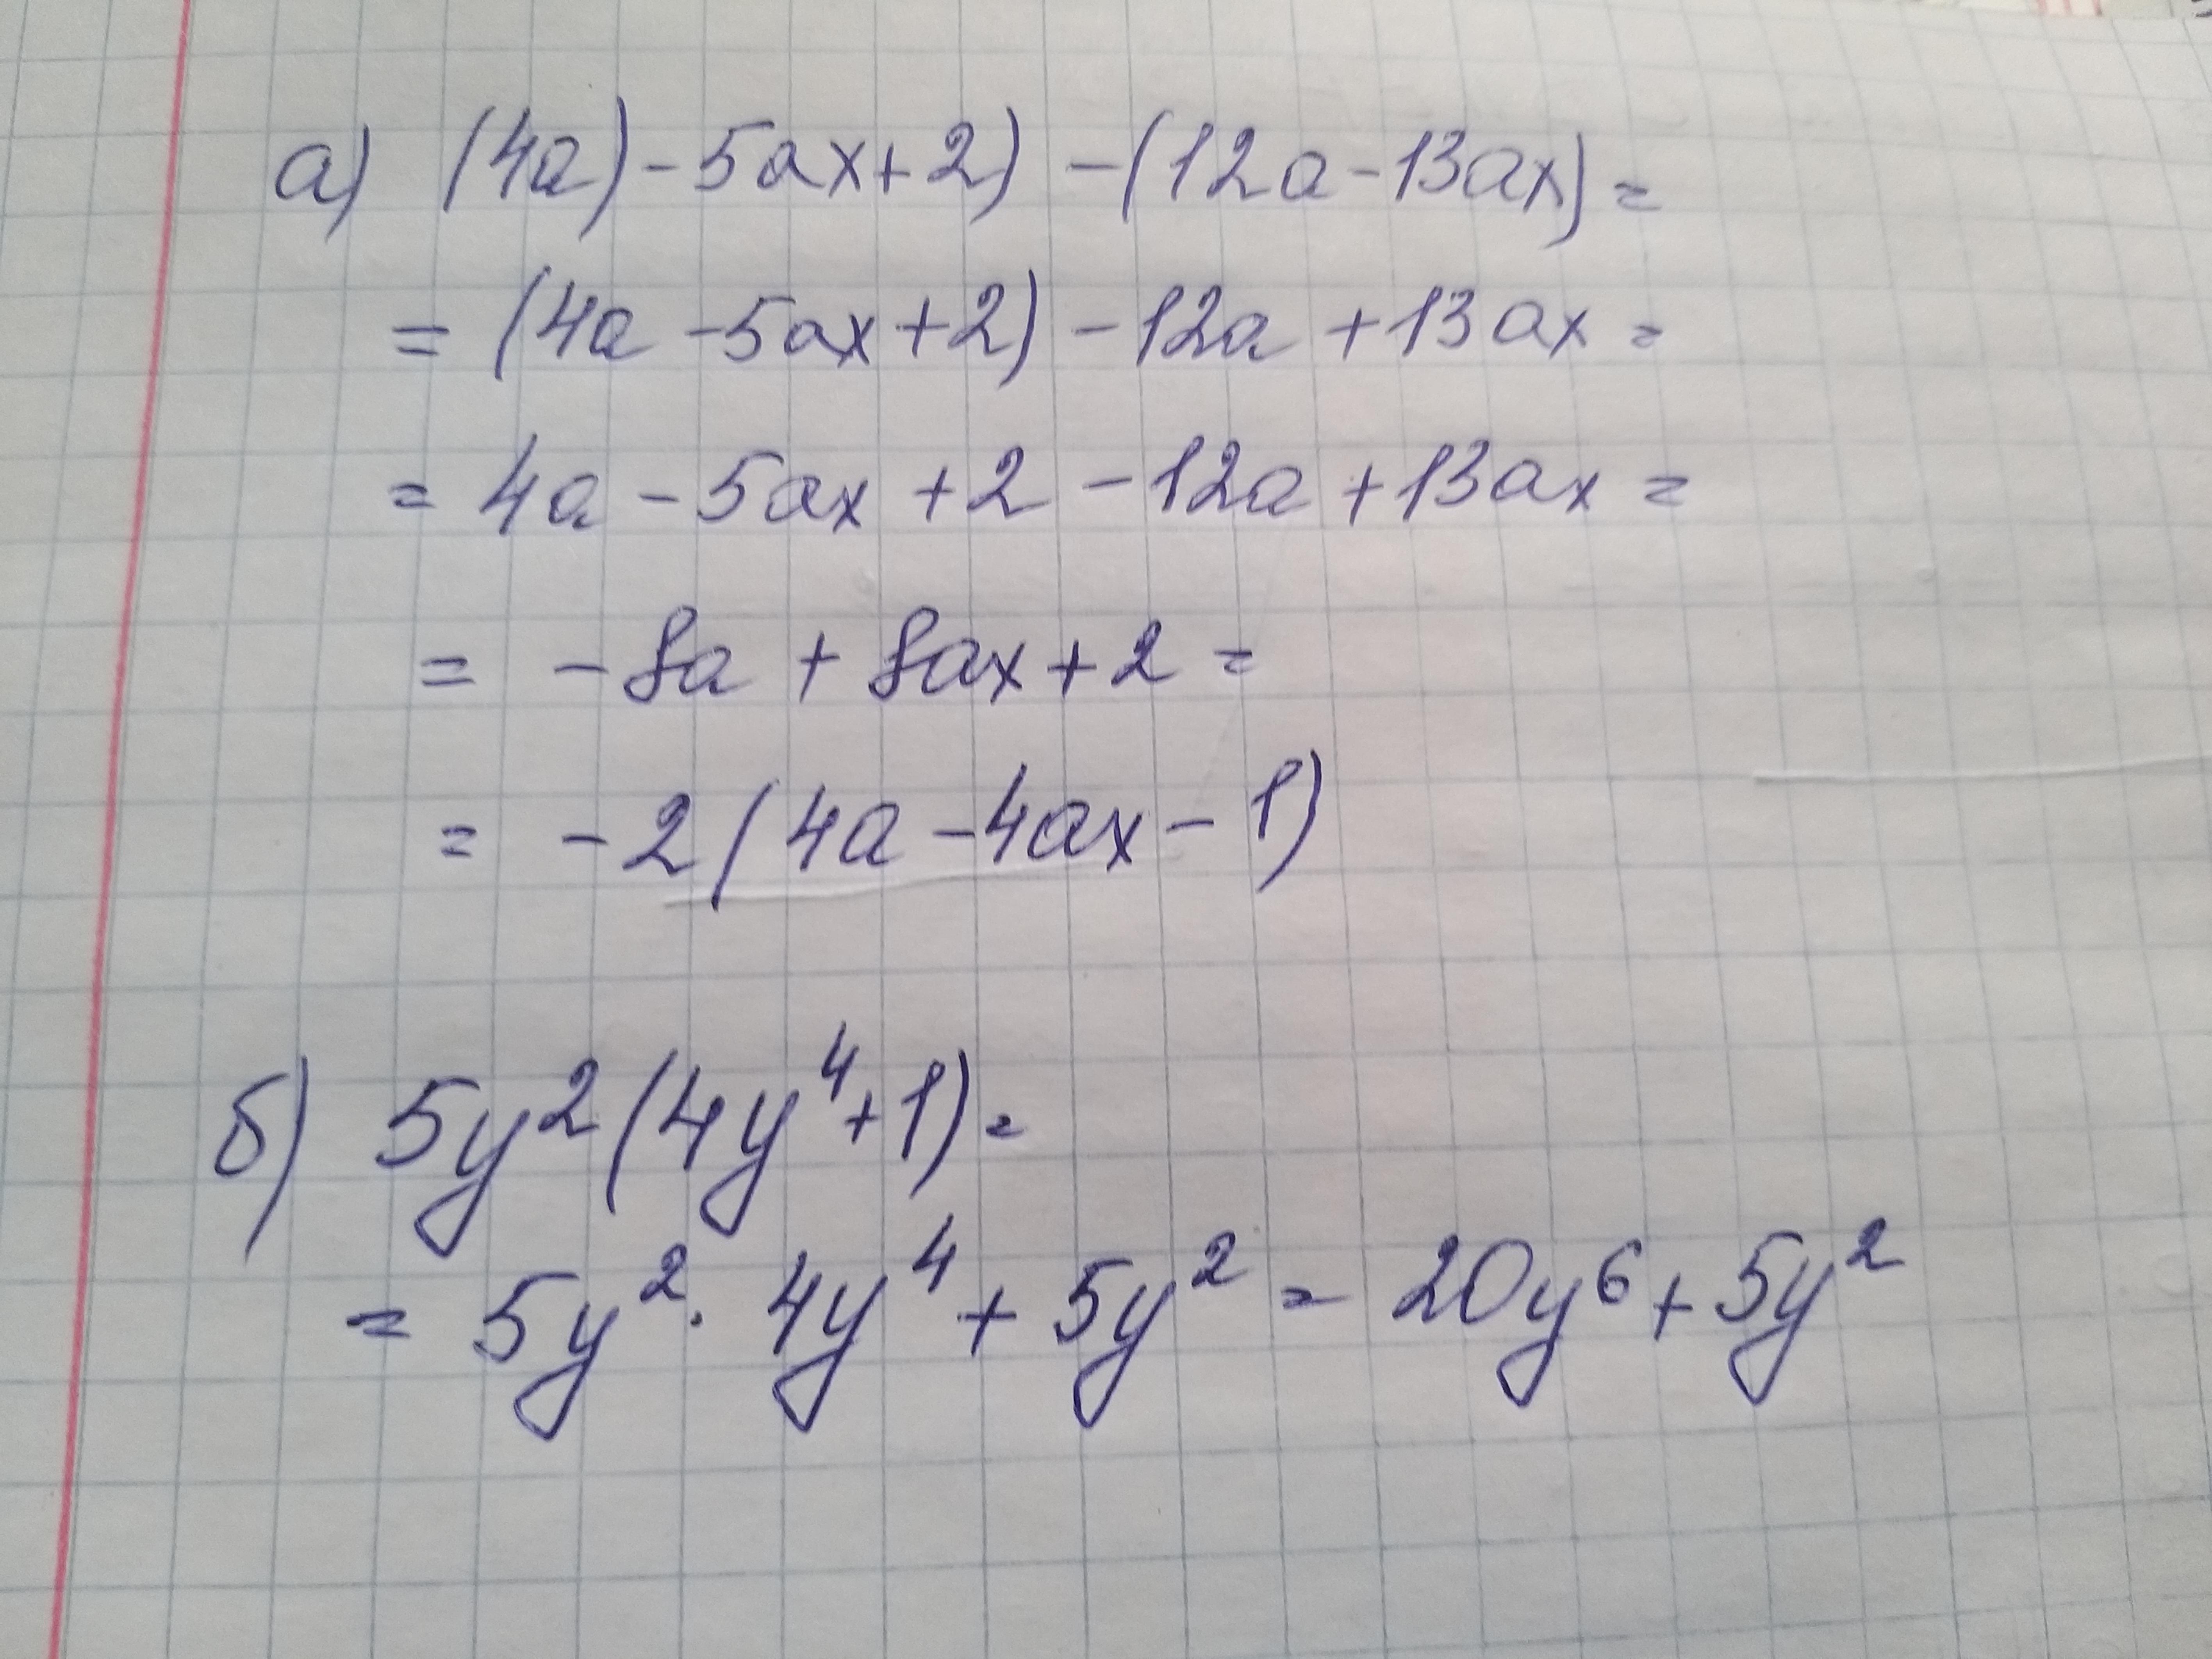 а) (4a) - 5ax + 2) - (12a - 13ax) =
= (4a - 5ax + 2) - 12a + 13ax =
= 4a - 5ax + 2 - 12a + 13ax =
= - 8a + 8ax + 2 =
= - 2 (4a - 4ax - 1)
б) 5y² (4y⁴ + 1) =
= 5y² · 4y⁴ + 5y² = 20y⁶ + 5y²